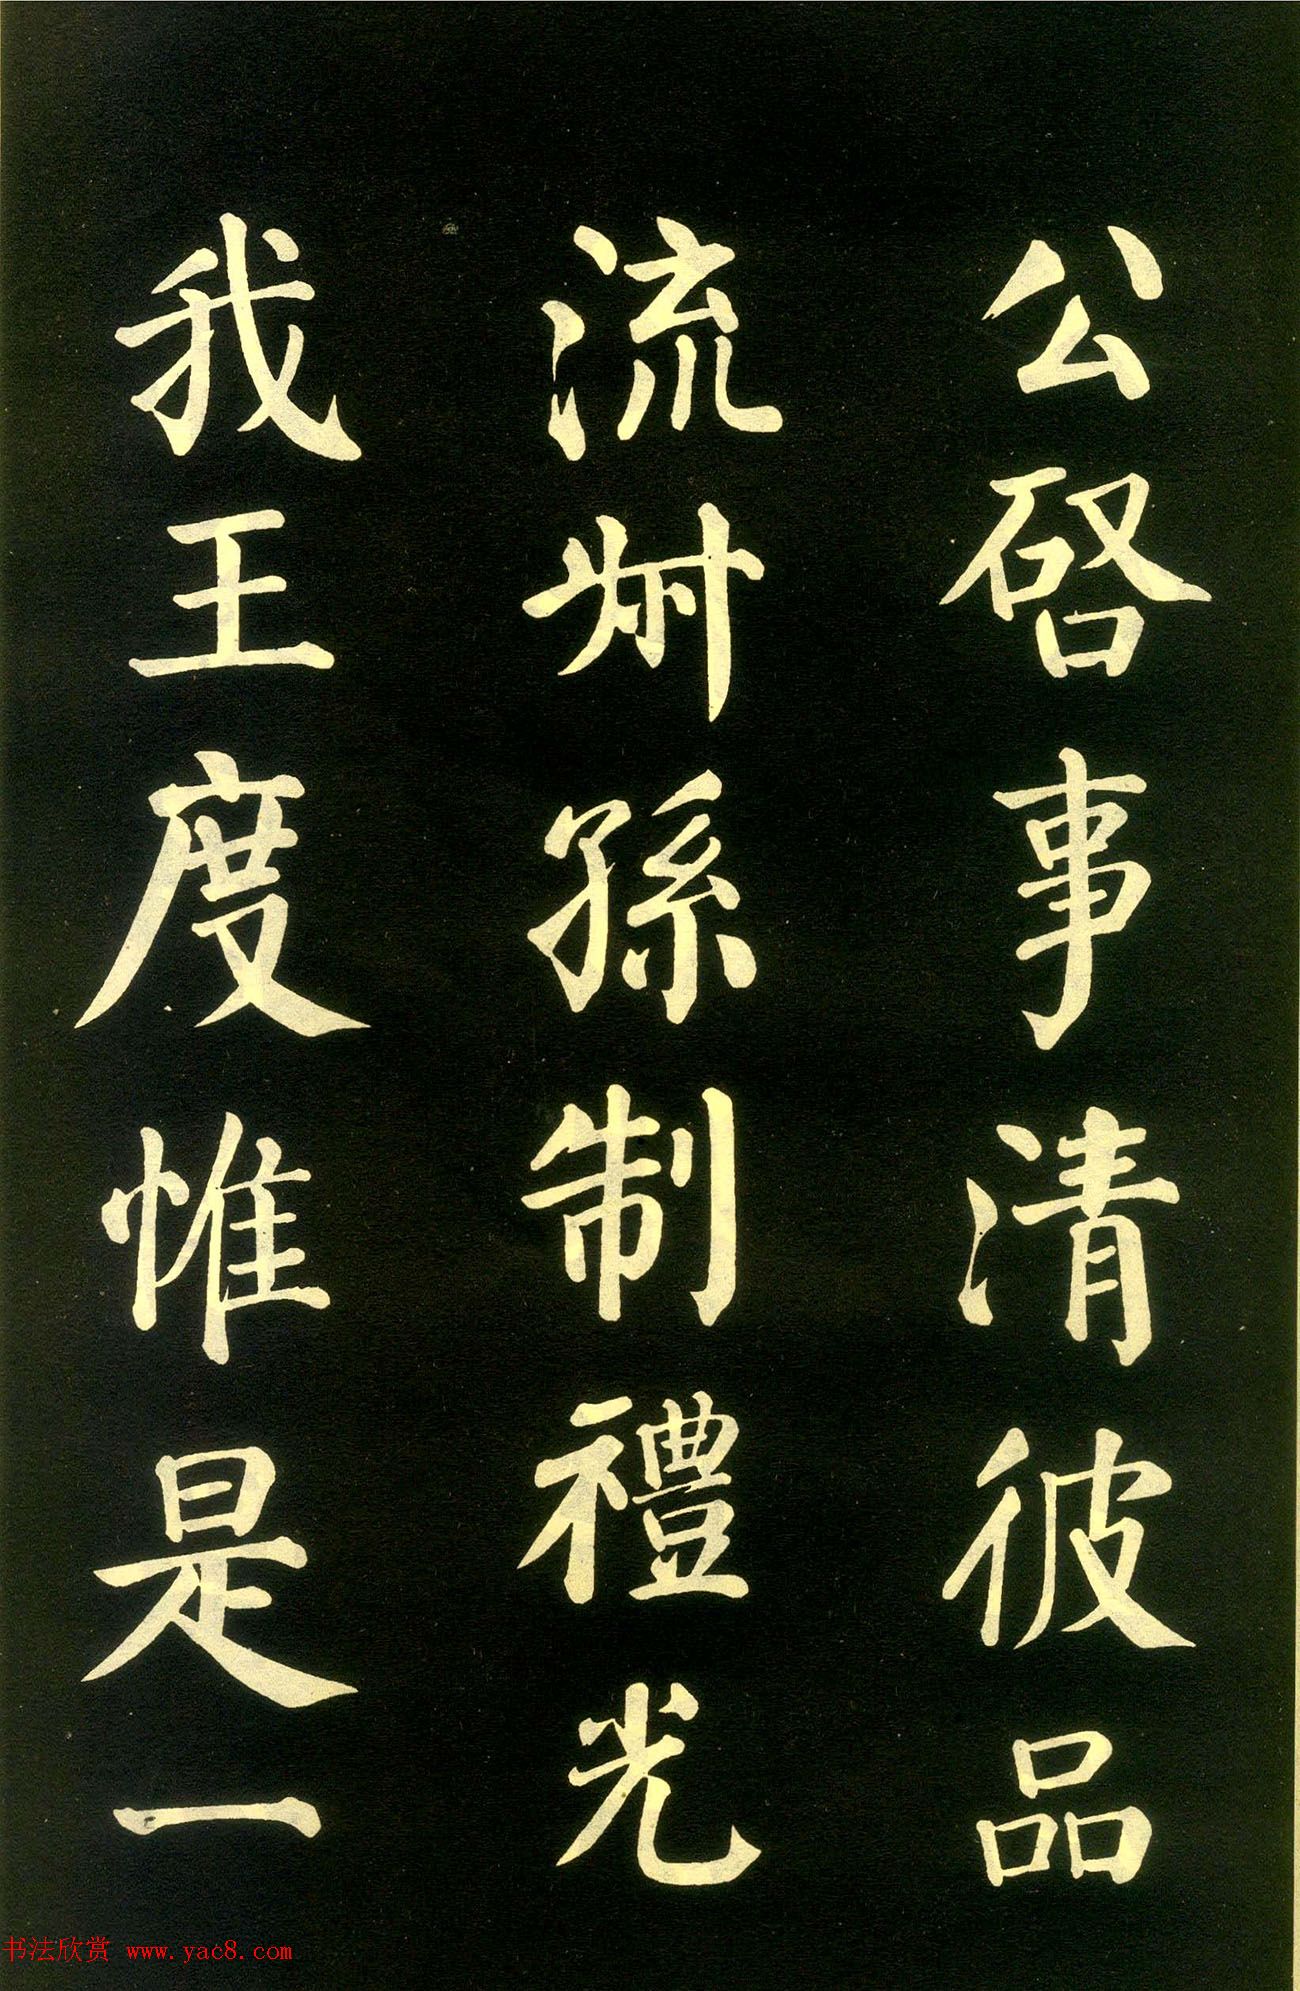 公啓事清彼品
流叔孫制禮光
我王度惟是一
书法欣赏 www.yac8.com